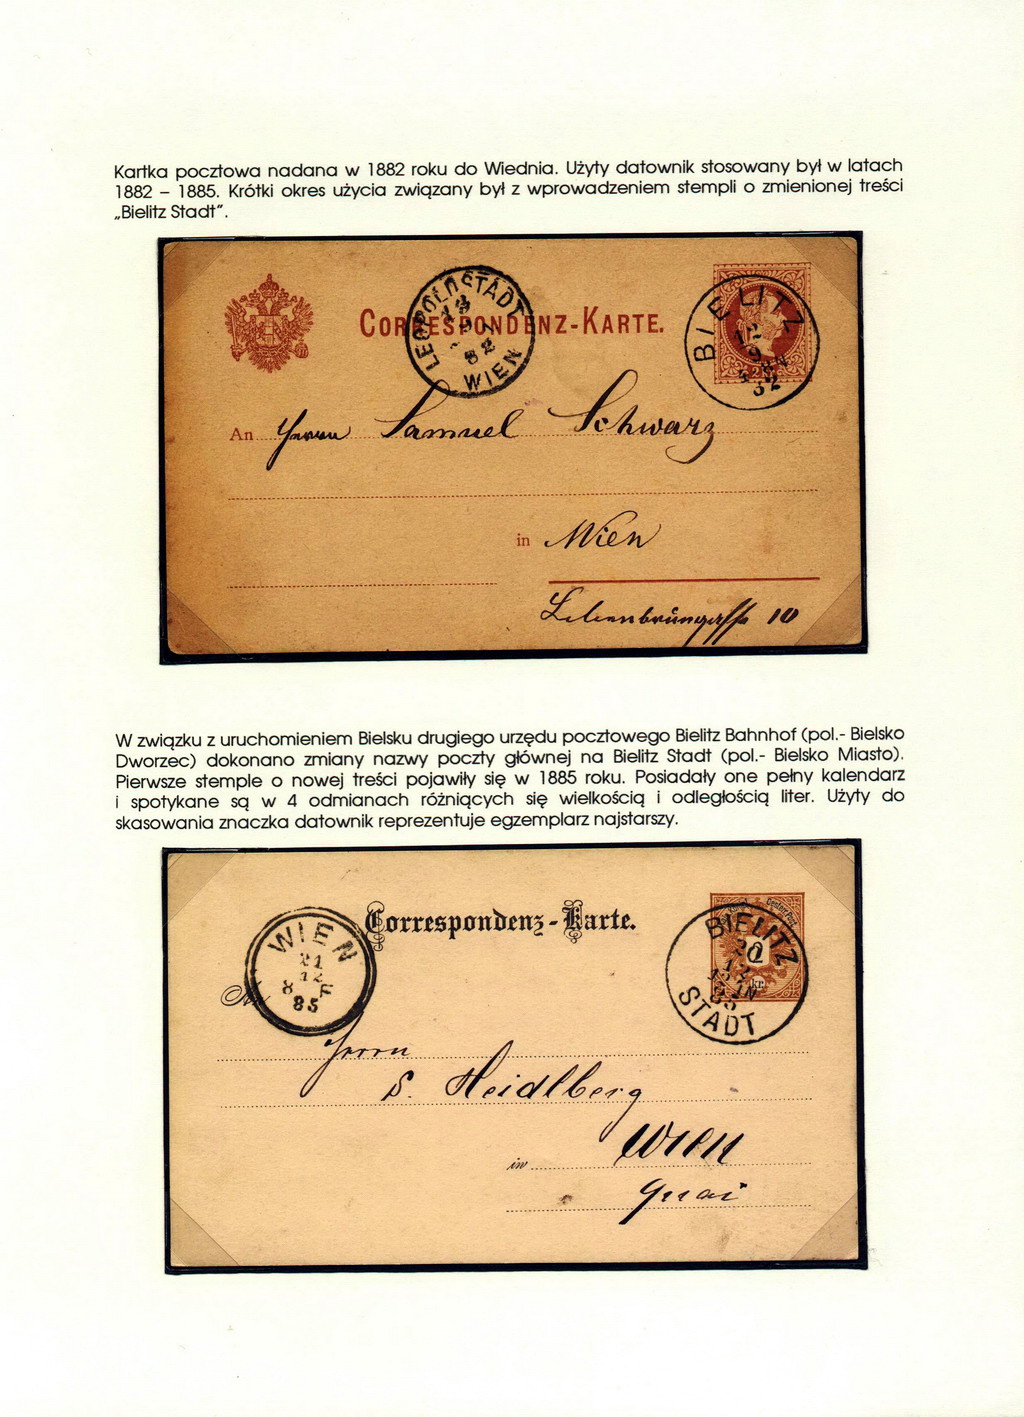 Kartka pocztowa nadana w 1882 roku do Wiednia. Użyty datownik stosowany był w latach
1882 – 1885. Krótki okres użycia związany był z wprowadzeniem stempli o zmienionej treści
„Bielitz Stadt”.
LEOPOLDSTADT
WIEN
82
CORRESPONDENZ-KARTE.
BIELITZ
12
9
82
An Herrn Samuel Schwarz
in Wien
Lilienbrunngasse 10
W związku z uruchomieniem Bielsku drugiego urzędu pocztowego Bielitz Bahnhof (pol.- Bielsko
Dworzec) dokonano zmiany nazwy poczty głównej na Bielitz Stadt (pol.- Bielsko Miasto).
Pierwsze stemple o nowej treści pojawiły się w 1885 roku. Posiadały one pełny kalendarz
i spotykane są w 4 odmianach różniących się wielkością i odległością liter. Użyty do
skasowania znaczka datownik reprezentuje egzemplarz najstarszy.
WIEN
21
12
8 F
85
Correspondenz-Karte.
BIELITZ
20
12
85
STADT
2
kr.
Herrn
S. Heidlberg
in Wien
Quai